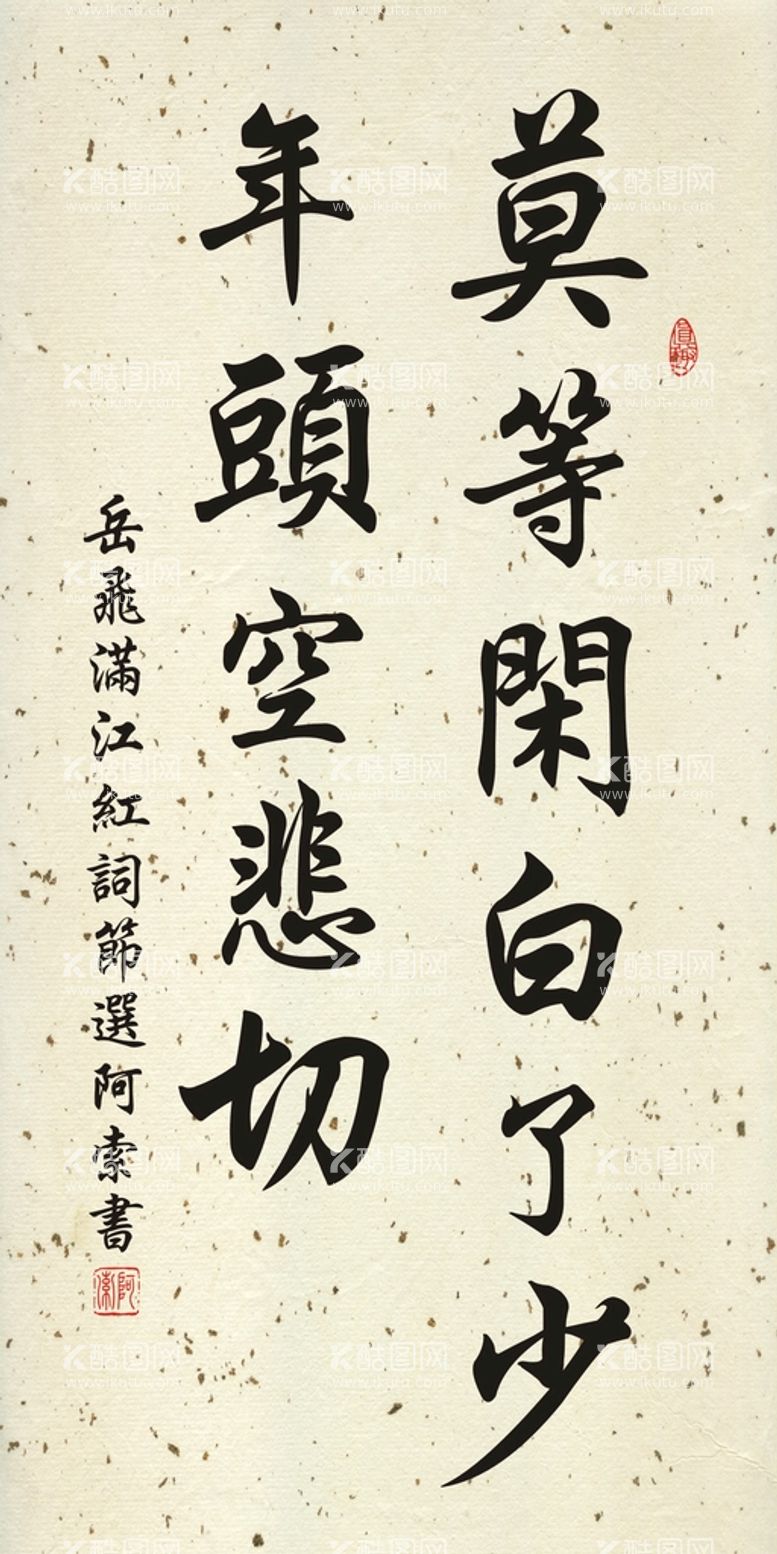 莫等閑白了少
年頭空悲切
岳飛滿江紅詞節選阿索書
阿索
酷图网
www.ikutu.com